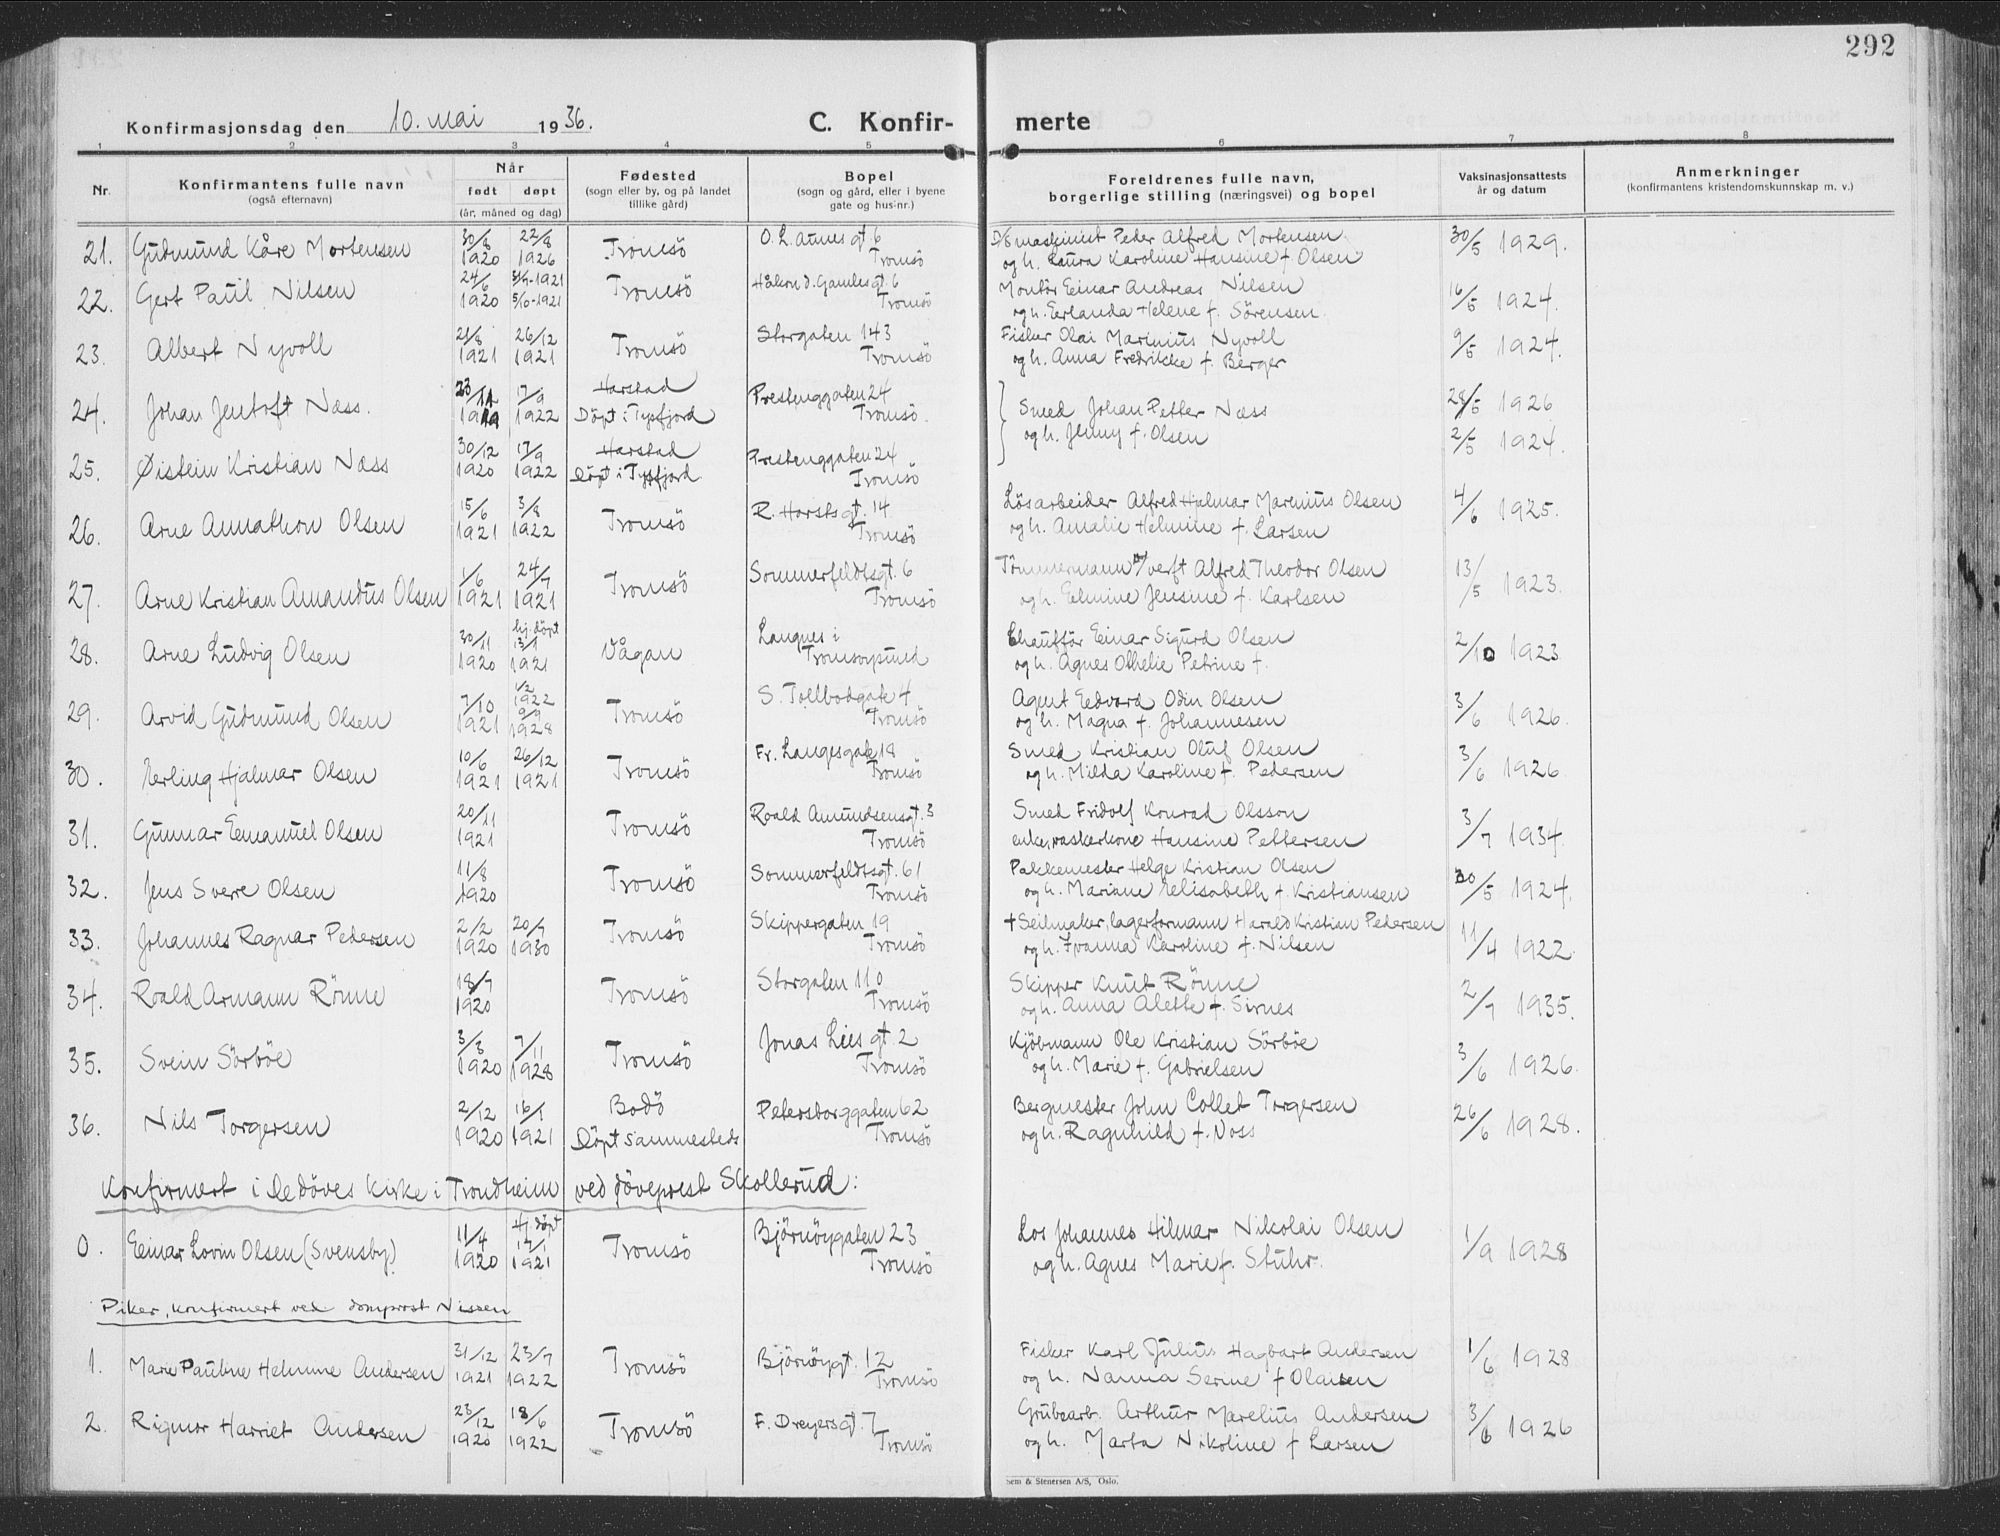 292
Konfirmasjonsdag den 10. mai 1936.
C. Konfir- merte
1 2 3 4 5 6 7 8
Nr.
Konfirmantens fulle navn
(også efternavn)
Når
født døpt
(år, måned og dag)
Fødested
(sogn eller by, og på landet
tillike gård)
Bopel
(sogn og gård, eller i byene
gate og hus-nr.)
Foreldrenes fulle navn,
borgerlige stilling (næringsvei) og bopel
Vaksinasjonsattests
år og datum
Anmerkninger
(konfirmantens kristendomskunnskap m. v.)
21. Gudmund Kåre Mortensen 30/8 1920 22/8 1926 Tromsö O. L. Aunes gt 6 Tromsö D/S maskinist Peder Alfred Mortensen 30/5 1929.
og h. Laura Karoline Hansine f Olsen
22. Gert Paul Nilsen 24/6 1920 5/6-1921 Tromsö Håkon d. Gamles gt. 6 Tromsö Montör Einar Andreas Nilsen 16/5 1924.
og h. Eerlanda Helene f. Sörensen.
23. Albert Nyvoll 21/8 1921 26/12 1921 Tromsö Storgaten 143 Tromsö Fisker Olai Marinius Nyvoll 9/5 1924.
og h. Anna Fredrikke f. Berger
24. Johan Jentoft Næss. 23/11 1919 17/9 1922 Harstad Döpt i Tysfjord Prestenggaten 24 Tromsö. Smed Johan Petter Næss 28/5 1926
og h. Jenny f. Olsen 2/5 1924.
25. Øistein Kristian Næss 30/12 1920 17/9 1922 Harstad Döpt i Tysfjord Prestenggaten 24 Tromsö
26. Arne Annathon Olsen 15/6 1921 3/8 1922 Tromsö R. Harstsgt. 14 Tromsö Lösarbeider Alfred Hjalmar Marenius Olsen 4/6 1925.
og h. Amalie Helmine f. Larsen
27. Arne Kristian Amandus Olsen 1/6 1921 24/7 1921 Tromsö Sommerfeldtsgt. 6 Tromsö Tömmermann v/ verft Alfred Theodor Olsen 13/5 1923.
og h. Eelmine Jensine f. Karlsen
28. Arne Ludvig Olsen 30/11 1920 hj. döpt 13/1 1921 Vågan Langnes i Tromsöysund Chaufför Einar Sigurd Olsen 2/10 1923
og h. Agnes Othelie Petrine f.
29. Arvid Gudmund Olsen 7/10 1921 1/2 1922 9/9 1928 Tromsö S. Tollbodgate 4 Tromsö Agent Eedvard Odin Olsen 3/6 1926.
og h. Magna f. Johannesen
30. Eerling Hjalmar Olsen 10/6 1921 26/12 1921 Tromsö Fr. Langesgate 18 Tromsö Smed Kristian Oluf Olsen 3/6 1926.
og h. Milda Karoline f. Pedersen
31. Gunnar Eemanuel Olsen 20/11 1921 Tromsö Roald Amundsensgt. 3 Tromsö Smed Fridolf Konrad Olsson 3/7 1934.
enke, vaskerkone Hansine Pettersen
32. Jens Svere Olsen 11/8 1920 Tromsö Sommerfeldtsgt. 61 Tromsö Pakkemester Helge Kristian Olsen 30/5 1924.
og h. Mariane Eelisabeth f. Kristiansen
33. Johannes Ragnar Pedersen 2/2 1920 20/7 1930 Tromsö Skippergaten 19 Tromsö † Seilmaker, lagerformann Harald Kristian Pedersen 11/4 1922.
og h. Ivanna Karoline f. Nilsen
34. Roald Armann Rönne 18/7 1920 Tromsö Storgaten 110 Tromsö Skipper Knut Rönne 2/7 1935.
og h. Anna Alette f. Sirnes
35. Svein Sörböe 3/3 1920 7/11 1928 Tromsö Jonas Lies gt. 2 Tromsö Kjöbmann Ole Kristian Sörböe 3/6 1926.
og h. Marie f. Gabrielsen
36. Nils Torgersen 2/12 1920 16/1 1921 Bodö Döpt sammesteds Petersborggaten 62 Tromsö Bergmester John Collet Torgersen 26/6 1928.
og h. Ragnhild f. Voss
Konfirmert i De döves kirke i Trondheim ved döveprest Skollerud:
0. Eeinar Lovin Olsen (Svensby) 11/4 1920 Hj. döpt 17/1 1921 Tromsö Björnöygaten 23 Tromsö Los Johannes Hilmar Nikolai Olsen 1/9 1928
og h. Agnes Marie f. Stuhr.
Piker, konfirmert ved domprost Nissen
1. Marie Pauline Helmine Andersen 31/12 1921 23/7 1922 Tromsö Björnöygt. 12 Tromsö Fisker Karl Julius Hagbart Andersen 1/6 1928
og h. Nanna Serine f Olaisen
2. Rigmor Harriet Andersen 23/12 1920 18/6 1922 Tromsö F. Dreyersgt. 7 Tromsö Grubearb. Arthur Marelius Andersen 3/6 1926
og h. Marta Nikoline f Larsen
Sem & Stenersen A/S, Oslo.